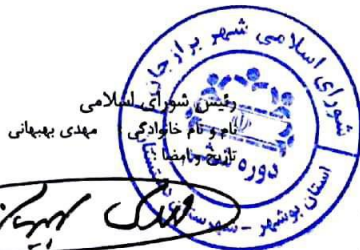 شورای اسلامی شهر برازجان
رئیس شورای اسلامی
نام و نام خانوادگی : مهدی بهبهانی
تاریخ و امضا :
دوره ششم
استان بوشهر - شهرستان دشتستان